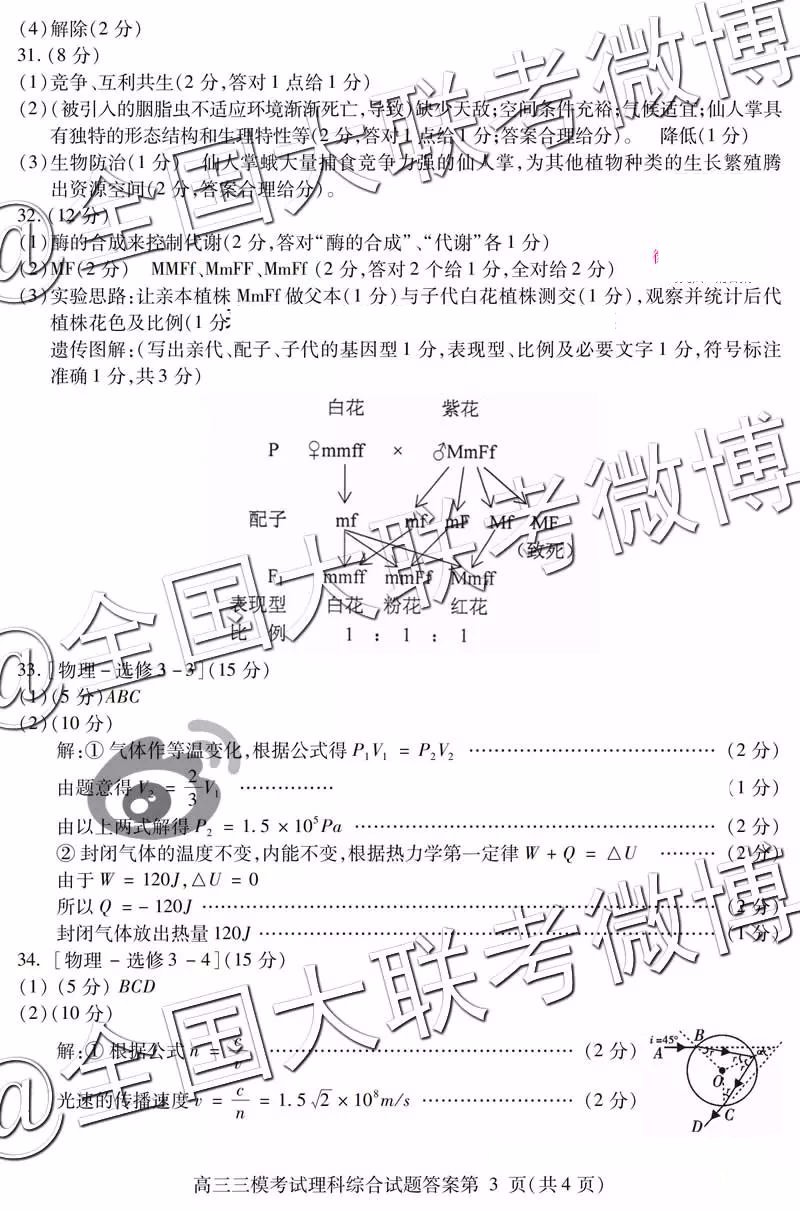 (4)解除(2 分)
31.(8 分)
(1)竞争、互利共生(2 分,答对 1 点给 1 分)
(2)(被引入的胭脂虫不适应环境渐渐死亡,导致)缺少天敌;空间条件充裕;气候适宜;仙人掌具
有独特的形态结构和生理特性等(2 分,答对 1 点给 1 分;答案合理给分)。 降低(1 分)
(3)生物防治(1 分) 仙人掌蛾大量捕食竞争力强的仙人掌,为其他植物种类的生长繁殖腾
出资源空间(2 分,答案合理给分)。
32.(12 分)
(1)酶的合成来控制代谢(2 分,答对“酶的合成”、“代谢”各 1 分)
(2)MF(2 分) MMFf、MmFF、MmFf (2 分,答对 2 个给 1 分,全对给 2 分)
(3)实验思路:让亲本植株 MmFf 做父本(1 分)与子代白花植株测交(1 分),观察并统计后代
植株花色及比例(1 分
遗传图解:(写出亲代、配子、子代的基因型 1 分,表现型、比例及必要文字 1 分,符号标注
准确 1 分,共 3 分)
白花 紫花
P ♀mmff × ♂MmFf
配子 mf mf mF Mf MF
(致死)
F₁ mmff mmFf Mmff
表现型 白花 粉花 红花
比 例 1 : 1 : 1
33.[物理-选修 3-3](15 分)
(1)(5 分)ABC
(2)(10 分)
解:① 气体作等温变化,根据公式得 P₁V₁ = P₂V₂ …………………………………… (2 分)
由题意得 V₂ = 2/3 V₁ …………… (1 分)
由以上两式解得 P₂ = 1.5 × 10⁵Pa …………………………………… (2 分)
② 封闭气体的温度不变,内能不变,根据热力学第一定律 W + Q = △U ……… (2 分)
由于 W = 120J,△U = 0
所以 Q = - 120J …………………………………… (2 分)
封闭气体放出热量 120J …………………………………… (1 分)
34.[物理 - 选修 3 - 4](15 分)
(1) (5 分) BCD
(2)(10 分)
解:① 根据公式 n = c/v …………………………………… (2 分)
光速的传播速度 v = c/n = 1.5 √2 × 10⁸m/s …………………… (2 分)
i=45° A B O C D r
高三三模考试理科综合试题答案第 3 页(共 4 页)
@全国大联考微博
@全国大联考微博
@全国大联考微博